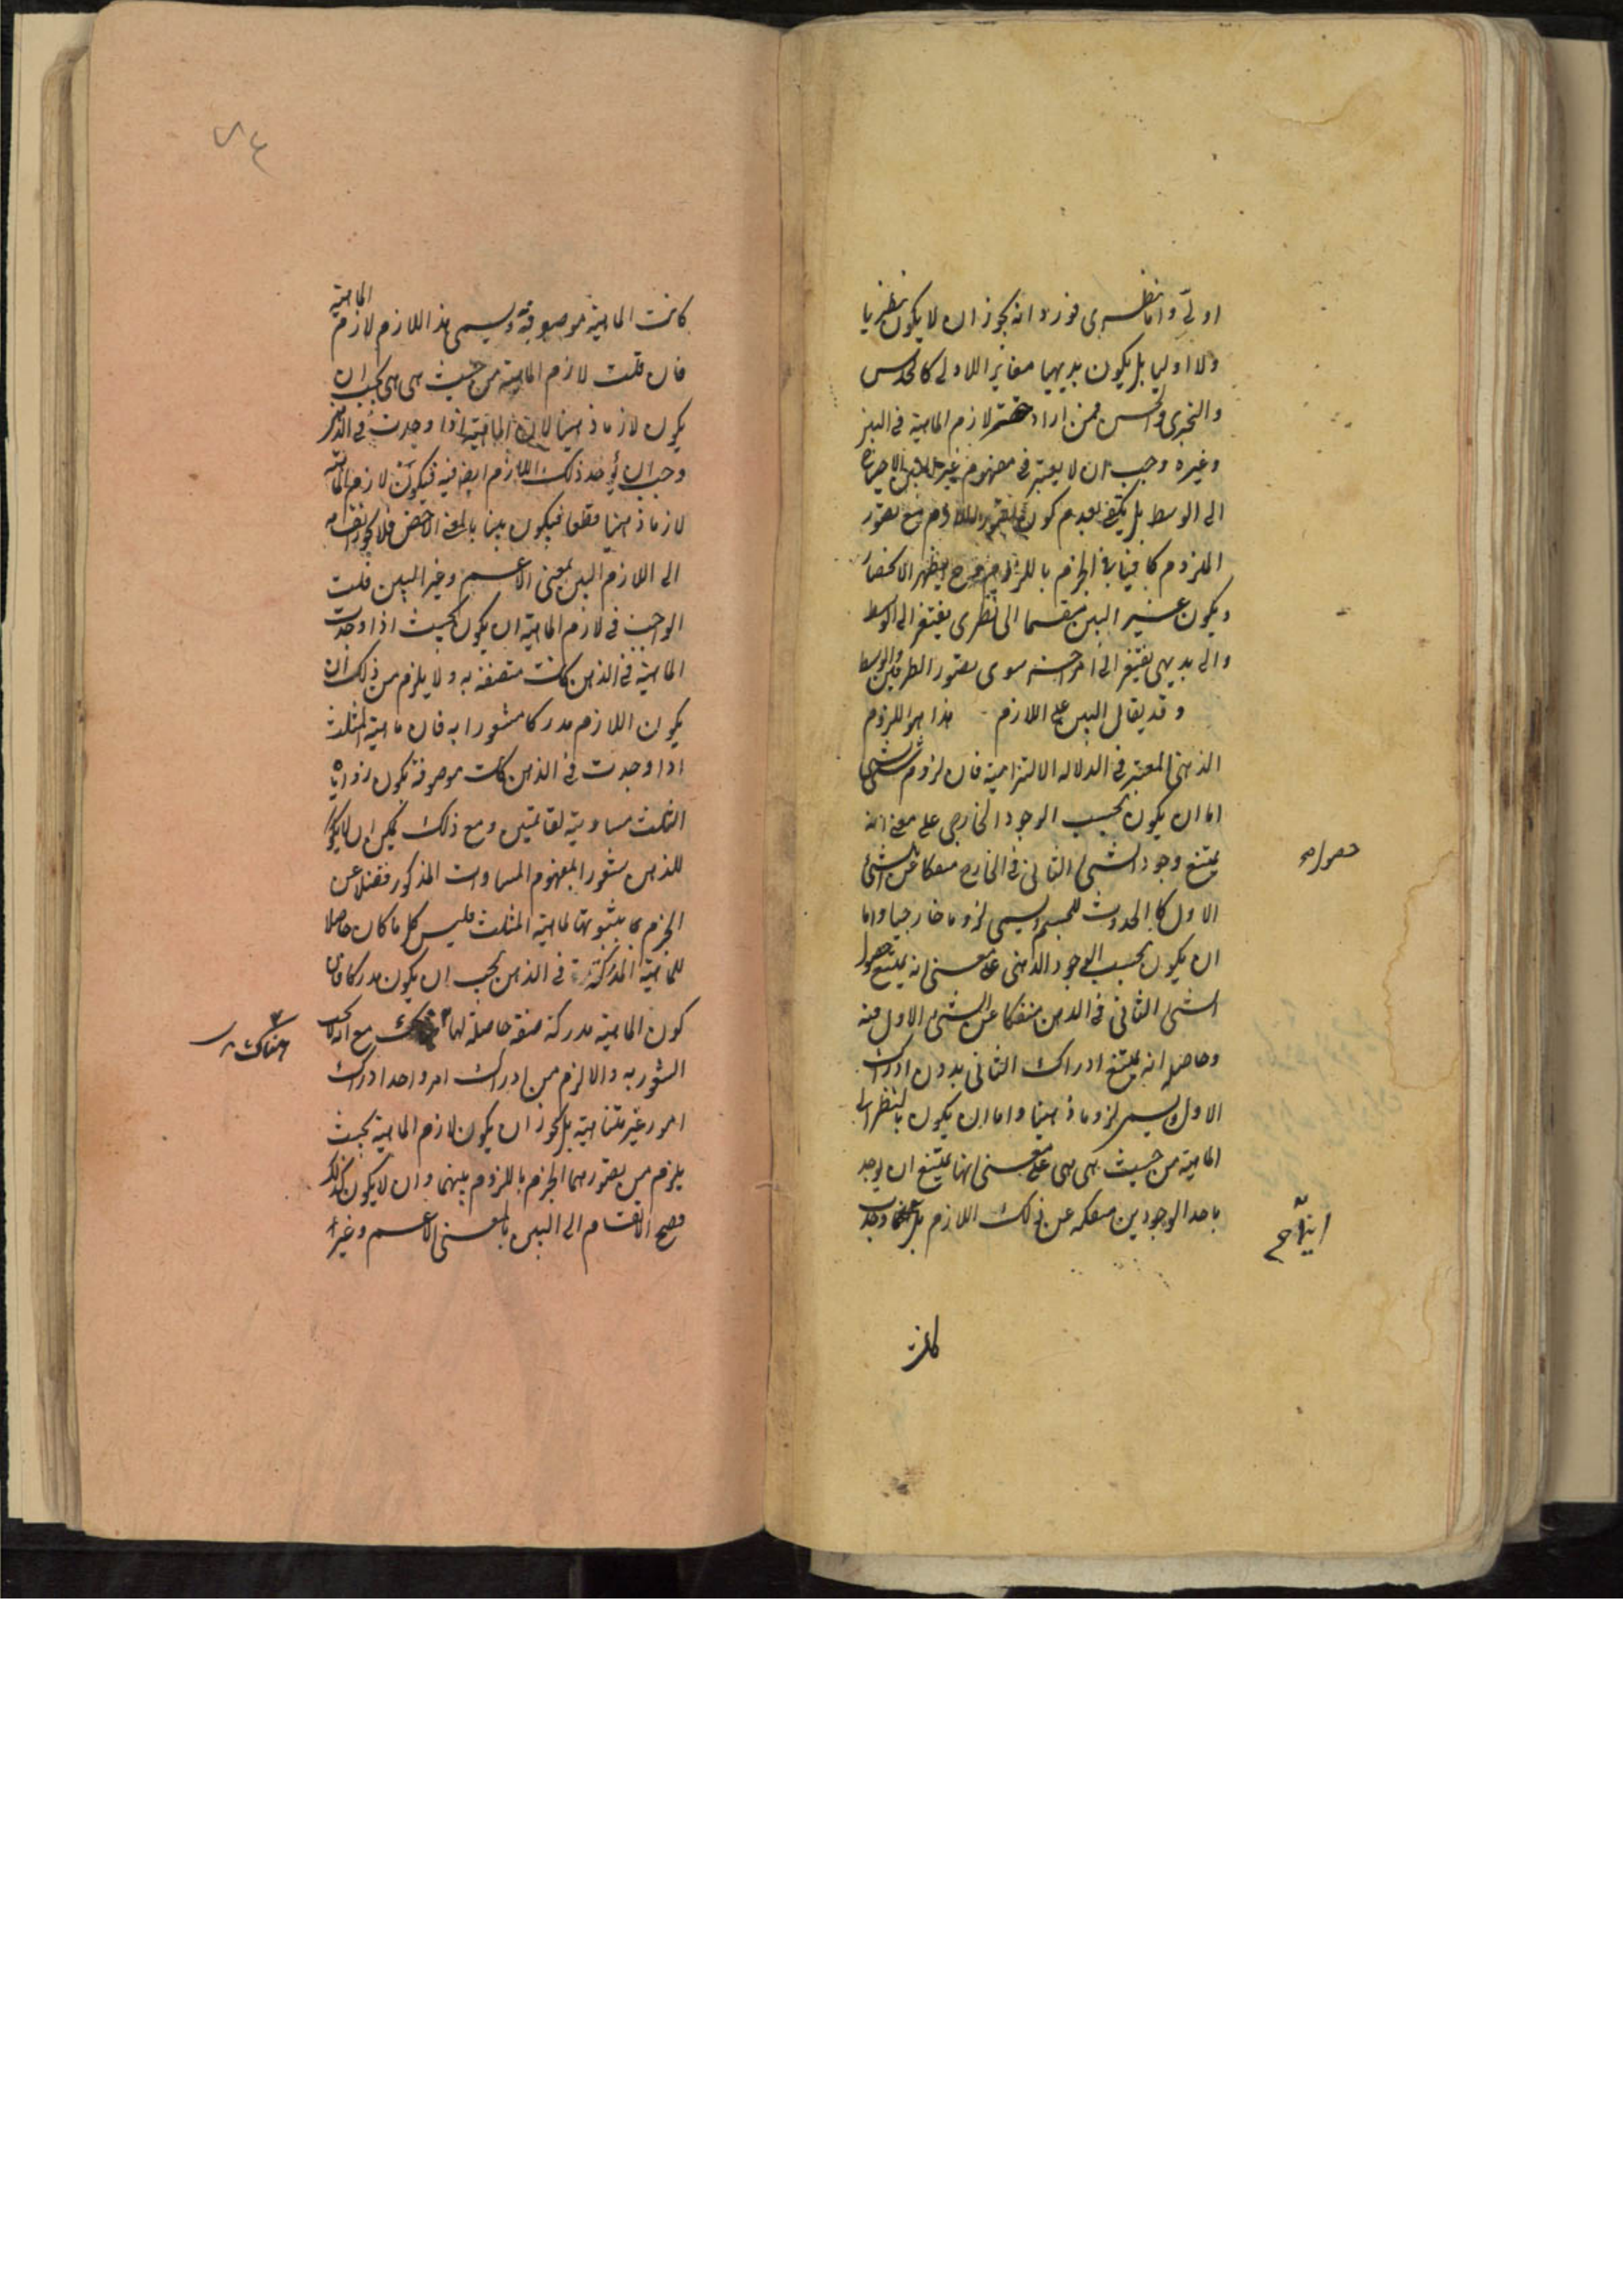 اولي واما نظرى فورد انه يجوز ان لا يكون نظريا
ولا اوليا بل يكون بديهيا مغاير اللاولى كالحدسى
والتجربى والحسى فمن اراد حصر لازم الماهية فى البين
وغيره وجب ان لا يعتبر فى مفهوم غير البين الاحتياج
الى الوسط بل يكتفى بعدم كون تصور اللازم مع تصور
الملزوم كافيا فى الجزم باللزوم فح يظهر الانحصار
ويكون غير البين منقسما الى نظرى يفتقر الى الوسط
والى بديهى يفتقر الى امر آخر سوى تصور الطرفين والوسط
وقد يقال البين على اللازم هذا هو اللزوم
الذهنى المعتبر فى الدلالة الالتزامية فان لزوم شئ لشئ
اما ان يكون بحسب الوجود الخارجى على معنى انه
يمتنع وجود الشئ الثانى فى الخارج منفكا عن الشئ
حصوله
الاول كالحدوث للجسم ويسمى لزوما خارجيا واما
ان يكون بحسب الوجود الذهنى على معنى انه يمتنع حصول
الشئ الثانى فى الذهن منفكا عن الشئ الاول فيه
وحاصله انه يمتنع ادراك الثانى بدون ادراك
الاول ويسمى لزوما ذهنيا واما ان يكون بالنظر الى
الماهية من حيث هى هى على معنى انها يمتنع ان يوجد
باحد الوجودين منفكة عن ذلك اللازم بل اينما وجدت
اينما صح
كانت
كانت الماهية موصوفة به ويسمى هذا اللازم لازم الماهية
فان قلت لازم الماهية من حيث هى هى يجب ان
يكون لازما ذهنيا لان الماهية اذا وجدت فى الذهن
وجب ان يوجد ذلك اللازم ايض فيه فيكون لازم الماهية
لازما ذهنيا قطعا فيكون بينا بالمعنى الاخص فلا يجوز انقسامه
الى اللازم البين بمعنى الاعم وغير البين قلت
الواجب فى لازم الماهية ان يكون بحيث اذا وجدت
الماهية فى الذهن كانت متصفة به ولا يلزم من ذلك ان
يكون اللازم مدركا مشعورا به فان ماهية المثلث
اذا وجدت فى الذهن كانت موصوفة بكون زواياه
الثلث مساوية لقائمتين ومع ذلك يمكن ان لا يكون
للذهن شعور بمفهوم المساوات المذكور فضلا عن
الجزم بثبوتها لماهية المثلث فليس كل ما كان حاصلا
للماهية المدركة فى الذهن يجب ان يكون مدركا فان
كون الماهية مدركة صفة حاصلة لها هناك مع انه لا يجب
هناك
الشعور به والا لزم من ادراك امر واحد ادراك
امور غير متناهية بل يجوز ان يكون لازم الماهية بحيث
يلزم من تصورهما الجزم باللزوم بينهما وان لا يكون كذلك
فصح الانقسام الى البين بالمعنى الاعم وغيره